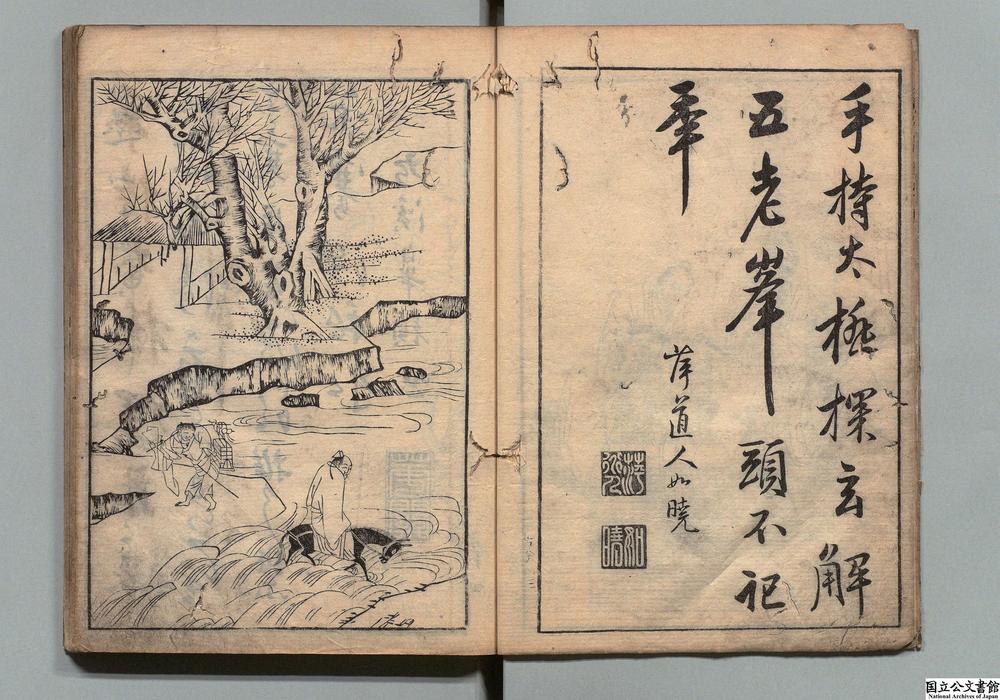 手持太極探玄解
五老峯頭不記
年
道人如曉
如曉
国立公文書館
National Archives of Japan